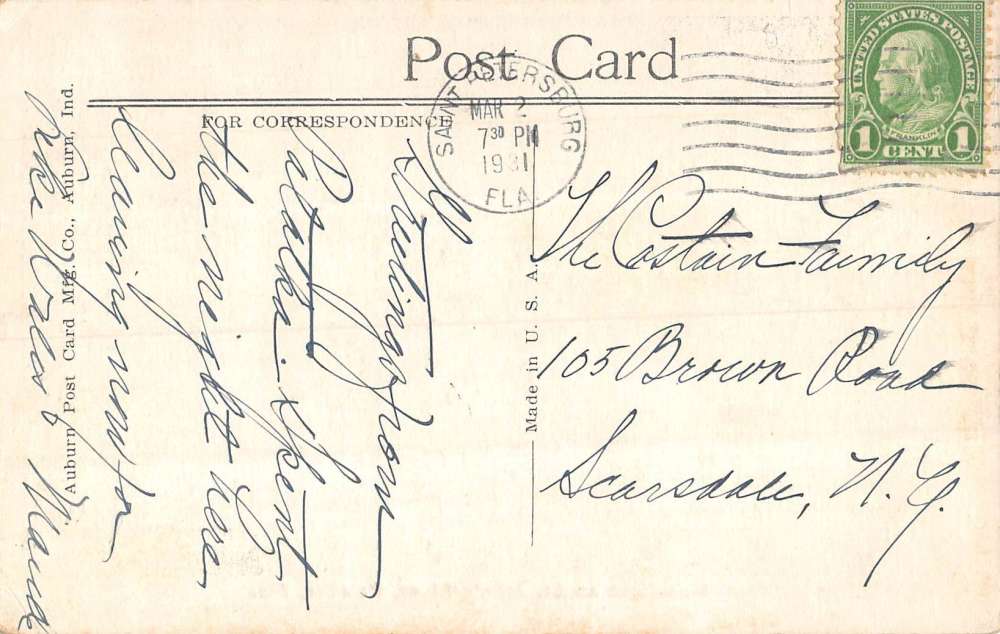 Post Card
UNITED STATES POSTAGE
FRANKLIN
1 CENT 1
SAINT PETERSBURG
MAR 2
7 30 PM
1931
FLA.
FOR CORRESPONDENCE
Greetings from
Palatka. Spent
the night here
leaving now for
Wales Maude
Auburn Post Card Mfg. Co., Auburn, Ind.
Made in U. S. A.
The Costain Family
105 Brown Road
Scarsdale, N. Y.